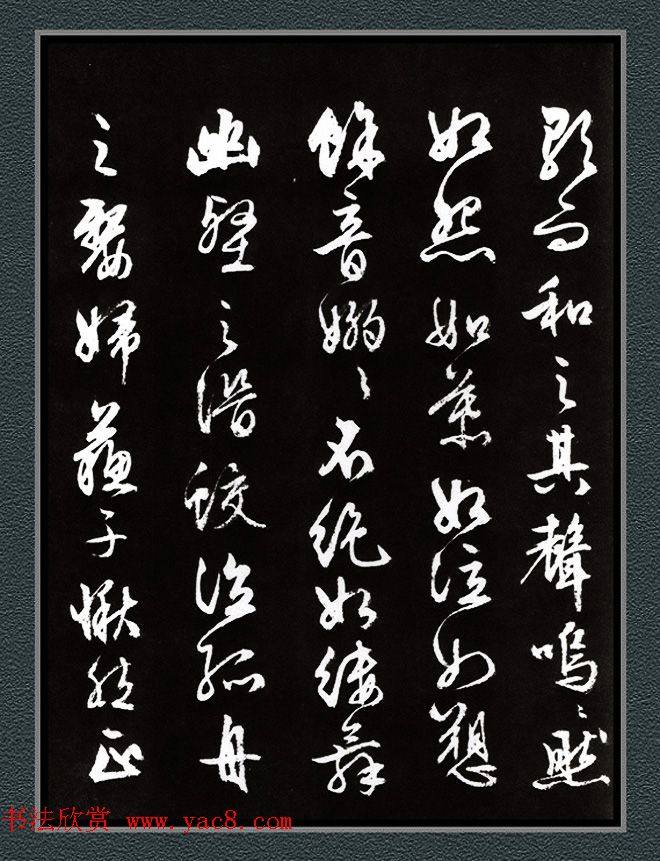 歌而和之其聲嗚〻然
如怨如慕如泣如愬
餘音嫋〻不絕如縷舞
幽壑之潛蛟泣孤舟
之嫠婦蘇子愀然正
书法欣赏 www.yac8.com